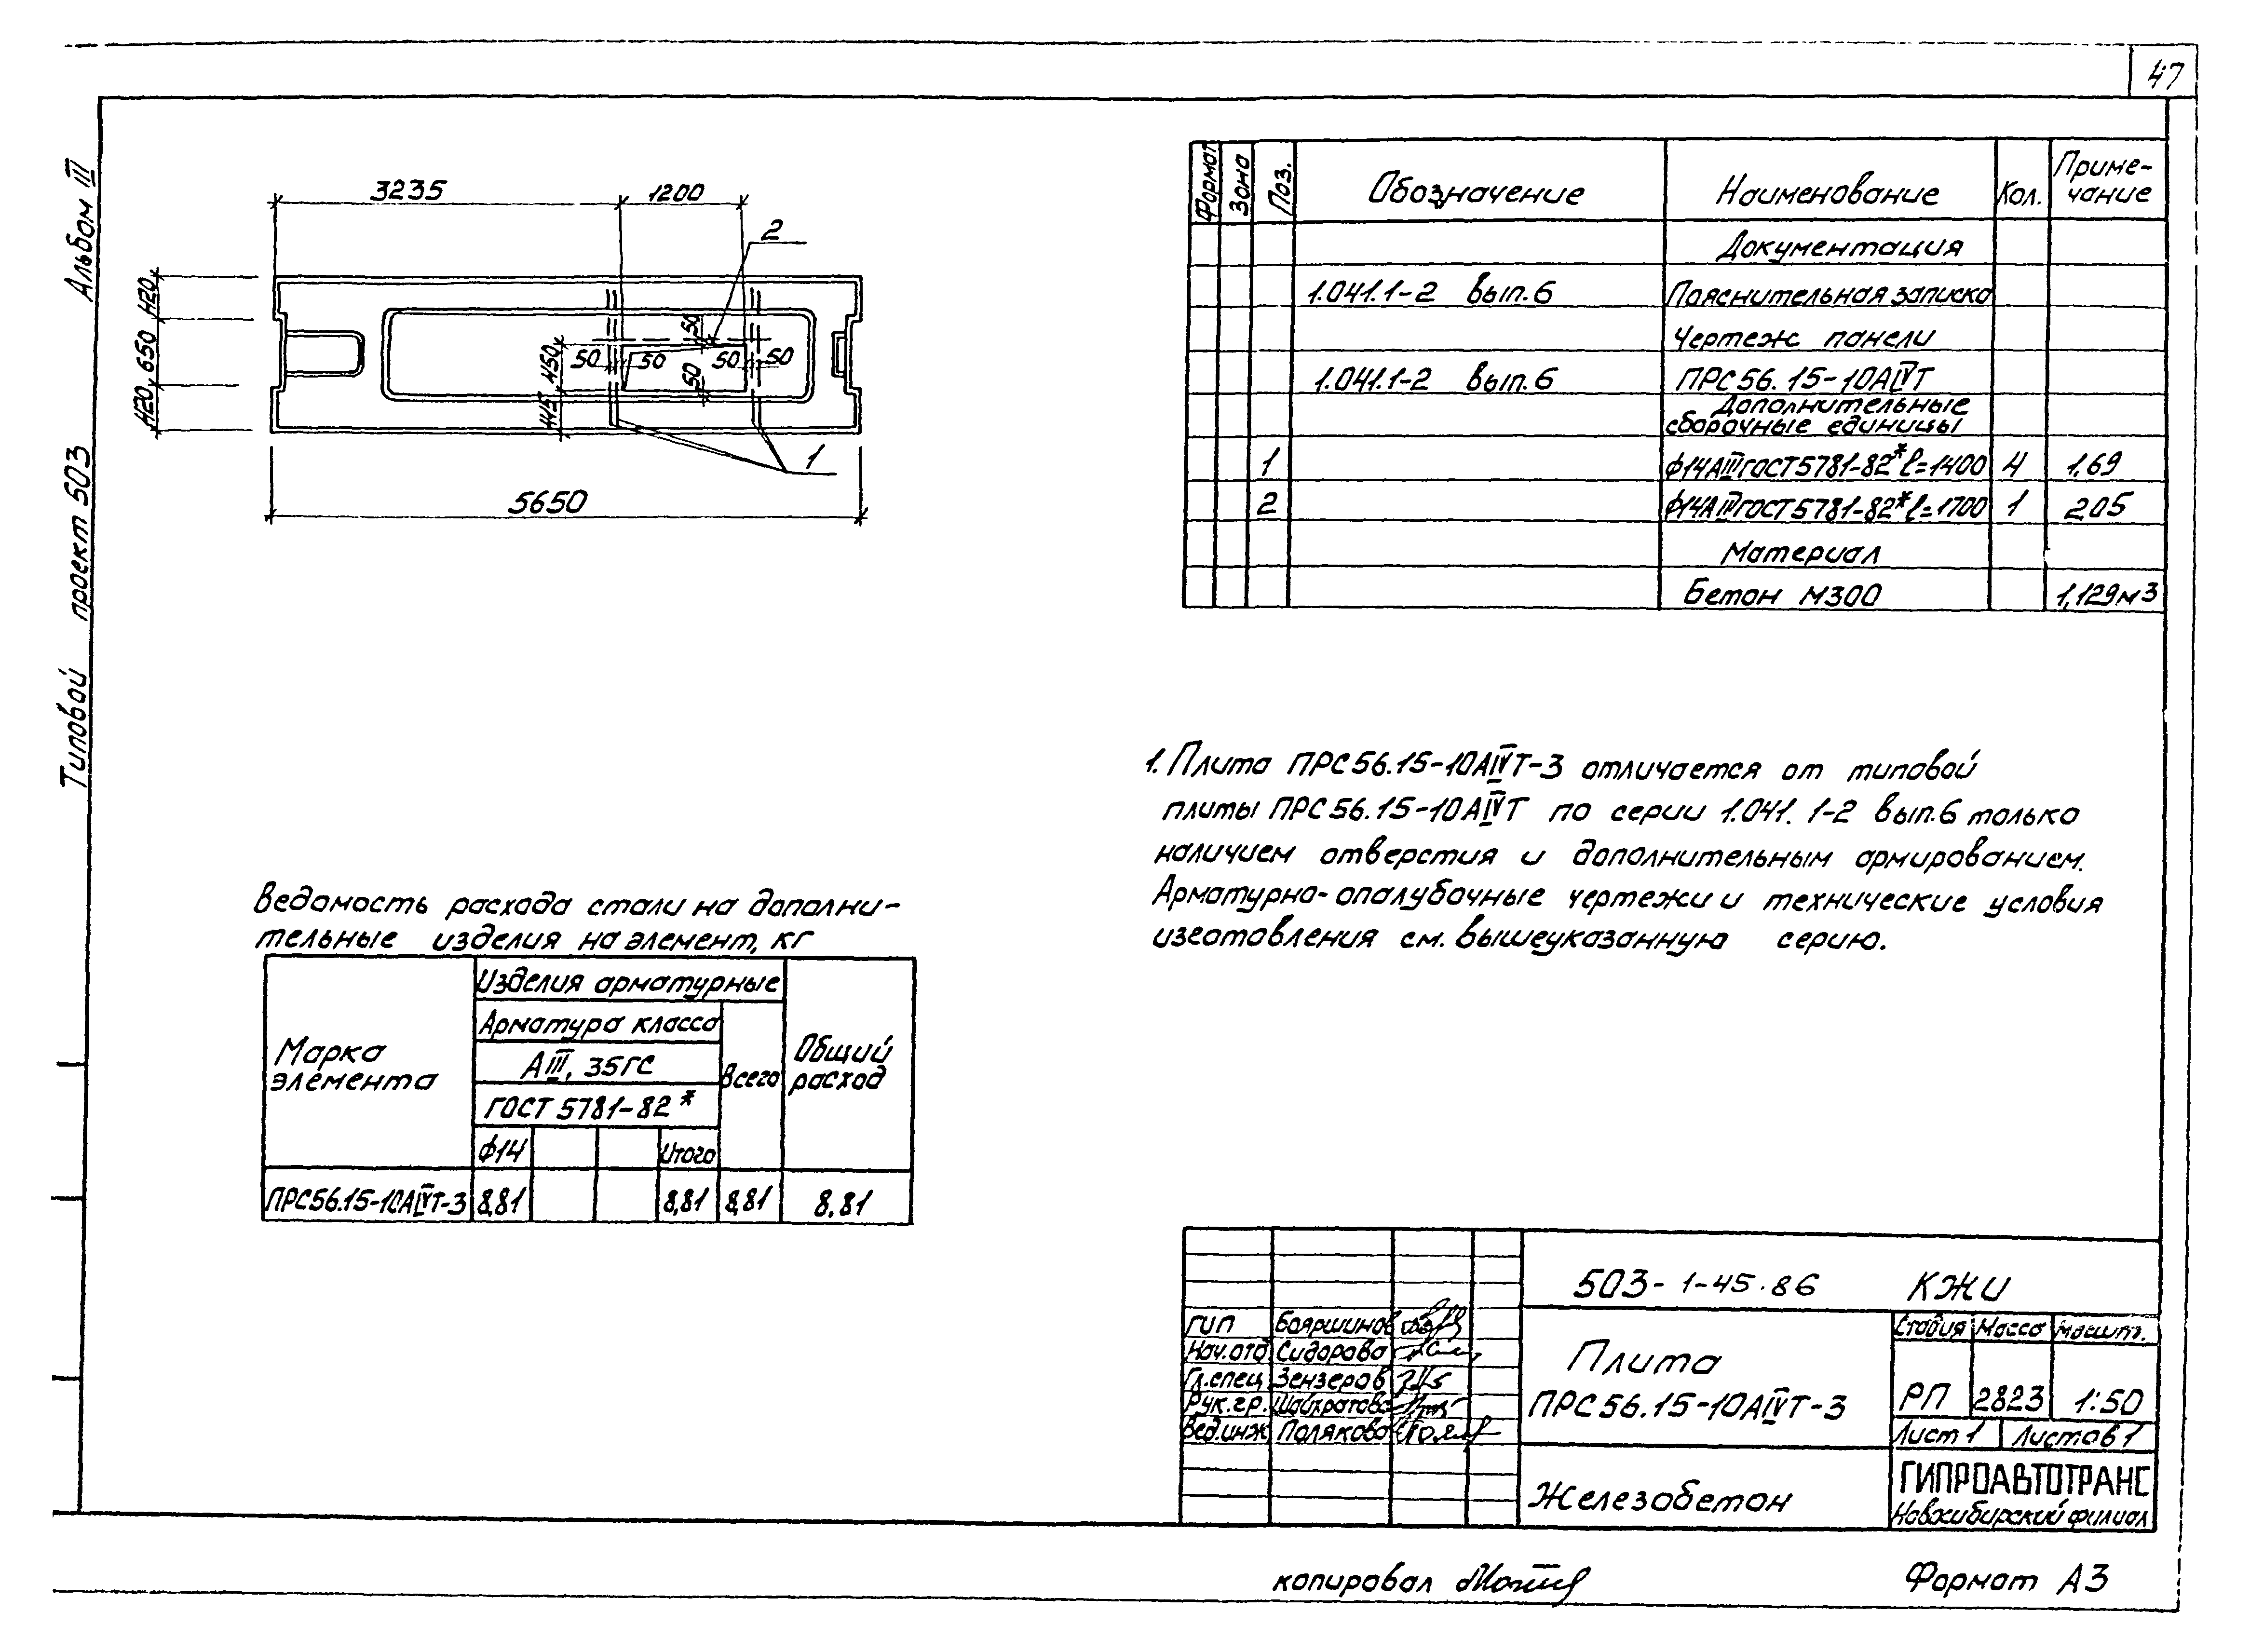 47
Альбом III
Типовой проект 503
3235
1200
2
420
650
420
50
450
50
50
50
50
50
445
1
5650
Формат
Зона
Поз.
Обозначение
Наименование
Кол.
Приме-
чание
Документация
1.041.1-2 вып.6
Пояснительная записка
Чертеж панели
1.041.1-2 вып.6
ПРС56.15-10АIVТ
Дополнительные
сборочные единицы
1 ф14АIIIГОСТ5781-82* l=1400 4 1,69
2 ф14АIIIГОСТ5781-82* l=1700 1 2,05
Материал
Бетон М300 1,129м3
1. Плита ПРС56.15-10АIVТ-3 отличается от типовой
плиты ПРС56.15-10АIVТ по серии 1.041.1-2 вып.6 только
наличием отверстия и дополнительным армированием.
Арматурно-опалубочные чертежи и технические условия
изготовления см. вышеуказанную серию.
Ведомость расхода стали на дополни-
тельные изделия на элемент, кг
Марка
элемента
Изделия арматурные
Арматура класса
АIII, 35ГС
ГОСТ 5781-82*
ф14
Итого
Всего
Общий
расход
ПРС56.15-10АIVТ-3 8,81 8,81 8,81 8.81
503-1-45.86 КЖИ
ГИП Бояршинов
Нач.отд Сидорова
Гл.спец Зензеров
Рук.гр.
Вед.инж Полякова
Плита
ПРС56.15-10АIVТ-3
Стадия Масса масшт.
РП 2823 1:50
Лист 1 Листов 1
Железобетон
ГИПРОАВТОТРАНС
Новосибирский филиал
копировал
Формат А3